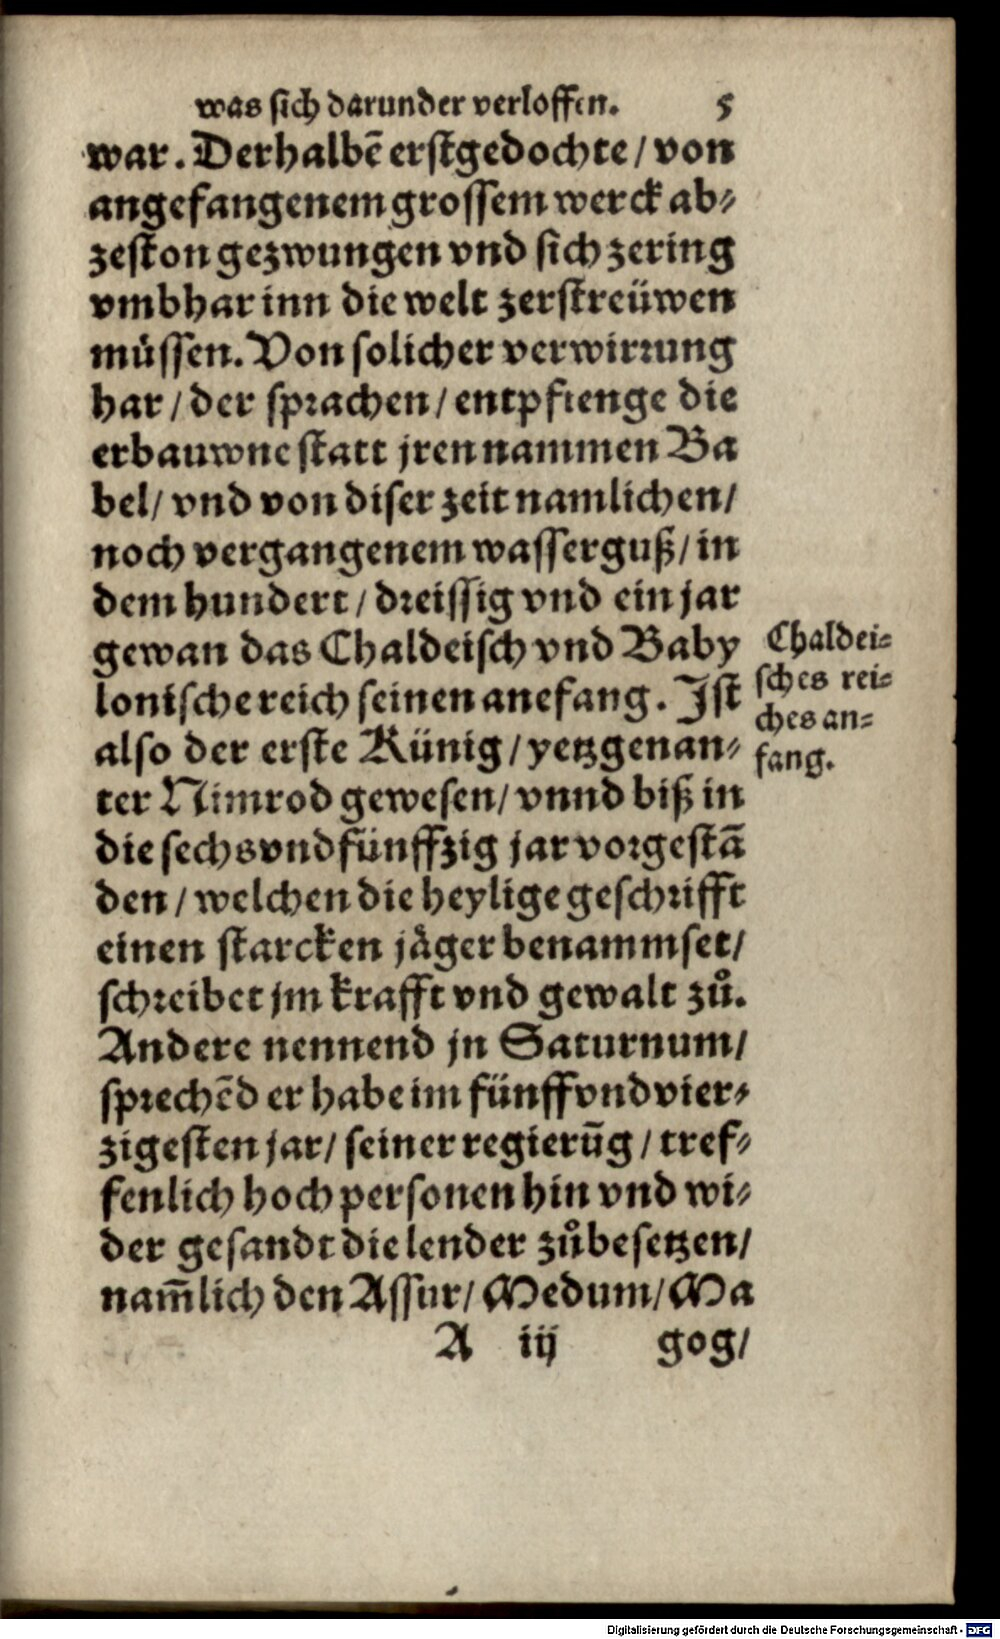 was sich darunder verloffen. 5
war. Derhalbē erstgedochte / von
angefangenem grossem werck ab⸗
zeston gezwungen vnd sich zering
vmbhar inn die welt zerstreüwen
müssen. Von solicher verwirrung
har / der sprachen / entpfienge die
erbauwne statt jren nammen Ba
bel / vnd von diser zeit namlichen /
noch vergangenem wasserguß / in
dem hundert / dreissig vnd ein jar
gewan das Chaldeisch vnd Baby
lonische reich seinen anefang. Ist
also der erste Künig / yetzgenan⸗
ter Nimrod gewesen / vnnd biß in
die sechsvndfünffzig jar vorgestā
den / welchen die heylige geschrifft
einen starcken jäger benammset /
schreibet jm krafft vnd gewalt zů.
Andere nennend jn Saturnum /
sprechēd er habe im fünffvndvier⸗
zigesten jar / seiner regierūg / tref⸗
fenlich hoch personen hin vnd wi⸗
der gesandt die lender zůbesetzen /
nam̄lich den Assur / Medum / Ma
A iij gog /
Chaldei⸗
sches rei⸗
ches an⸗
fang.
Digitalisierung gefördert durch die Deutsche Forschungsgemeinschaft - DFG